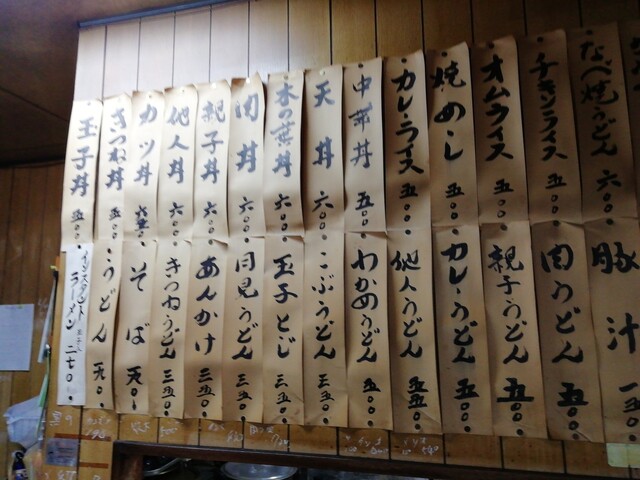 なべ焼うどん 六〇〇
チキンライス 五〇〇
オムライス 五〇〇
焼めし 五〇〇
カレーライス 五〇〇
中華丼 五〇〇
天丼 六〇〇
木の葉丼 六〇〇
肉丼 六〇〇
親子丼 六〇〇
他人丼 六〇〇
カツ丼 六五〇
きつね丼 五〇〇
玉子丼 五〇〇
豚汁 一五〇
肉うどん 五〇〇
親子うどん 五〇〇
カレーうどん 五〇〇
他人うどん 五五〇
わかめうどん 五〇〇
こぶうどん 三五〇
玉子とじ 三五〇
月見うどん 三五〇
あんかけ 三五〇
きつねうどん 三五〇
そば
うどん
インスタントラーメン 二七〇